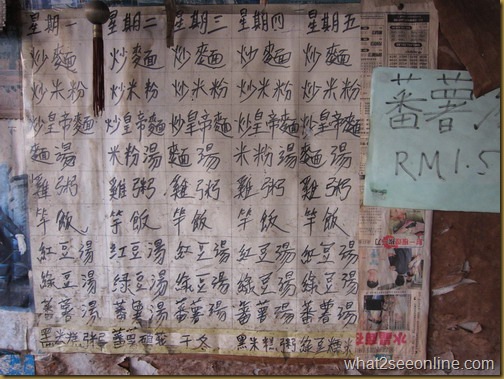 星期一 星期二 星期三 星期四 星期五
炒麵 炒麵 炒麵 炒麵 炒麵
炒米粉 炒米粉 炒米粉 炒米粉 炒米粉
炒皇帝麵 炒皇帝麵 炒皇帝麵 炒皇帝麵 炒皇帝麵
麵湯 米粉湯 麵湯 米粉湯 麵湯
雞粥 雞粥 雞粥 雞粥 雞粥
竿飯 竿飯 竿飯 竿飯 竿飯
紅豆湯 紅豆湯 紅豆湯 紅豆湯 紅豆湯
綠豆湯 綠豆湯 綠豆湯 綠豆湯 綠豆湯
蕃薯湯 蕃薯湯 蕃薯湯 蕃薯湯 蕃薯湯
黑米糕粥 蕃薯 干冬 黑米糕粥 綠豆
蕃薯
RM1.5
what2seeonline.com